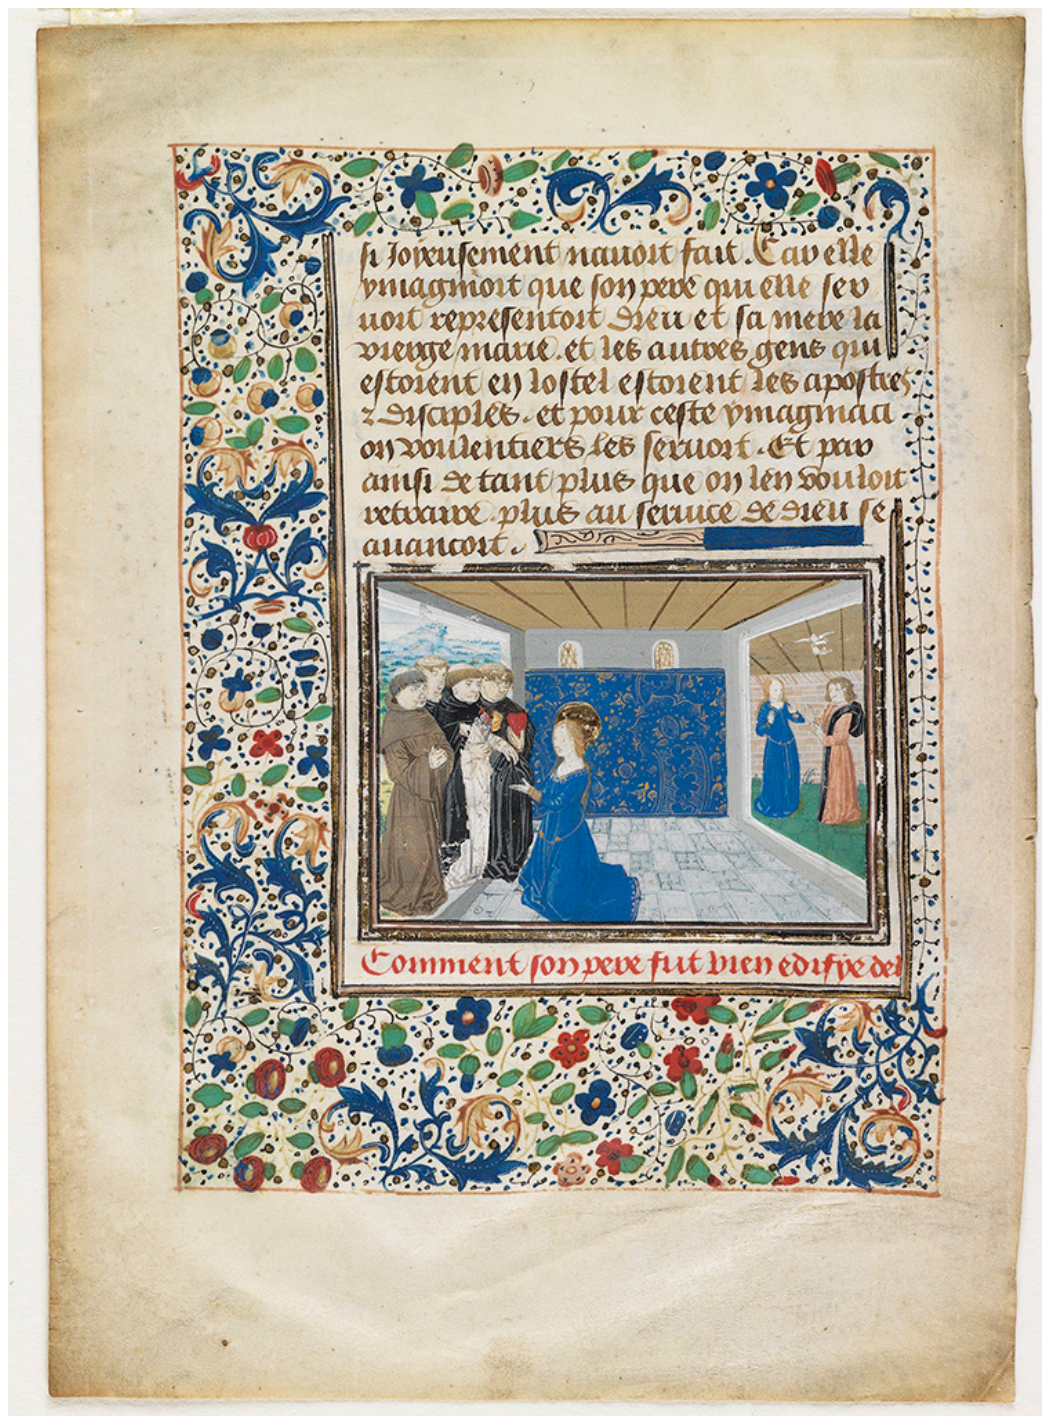 si Joyeusement nauoit fait. Car elle
ymaginoit que son pere qui elle ser
uoit representoit dieu et sa mere la
vierge marie. et les autres gens qui
estoient en lostel estoient les apostres
⁊ disciples. et pour ceste ymaginaci
on voulentiers les seruoit. Et par
ainsi de tant plus que on len vouloit
retraire plus au seruice de dieu se
auancoit.
Comment son pere fut bien edifye del